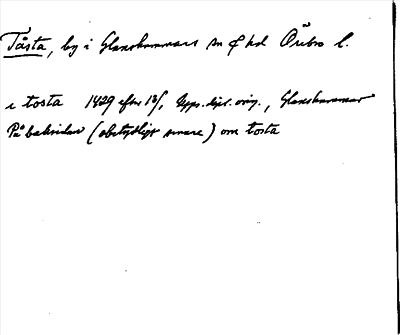 Tåsta, by i Glanshammars sn o hd Örebro l.
i tosta 1429 efter 13/1, Upps. dipl. orig., Glanshammar
På baksidan (obetydligt senare) om tosta